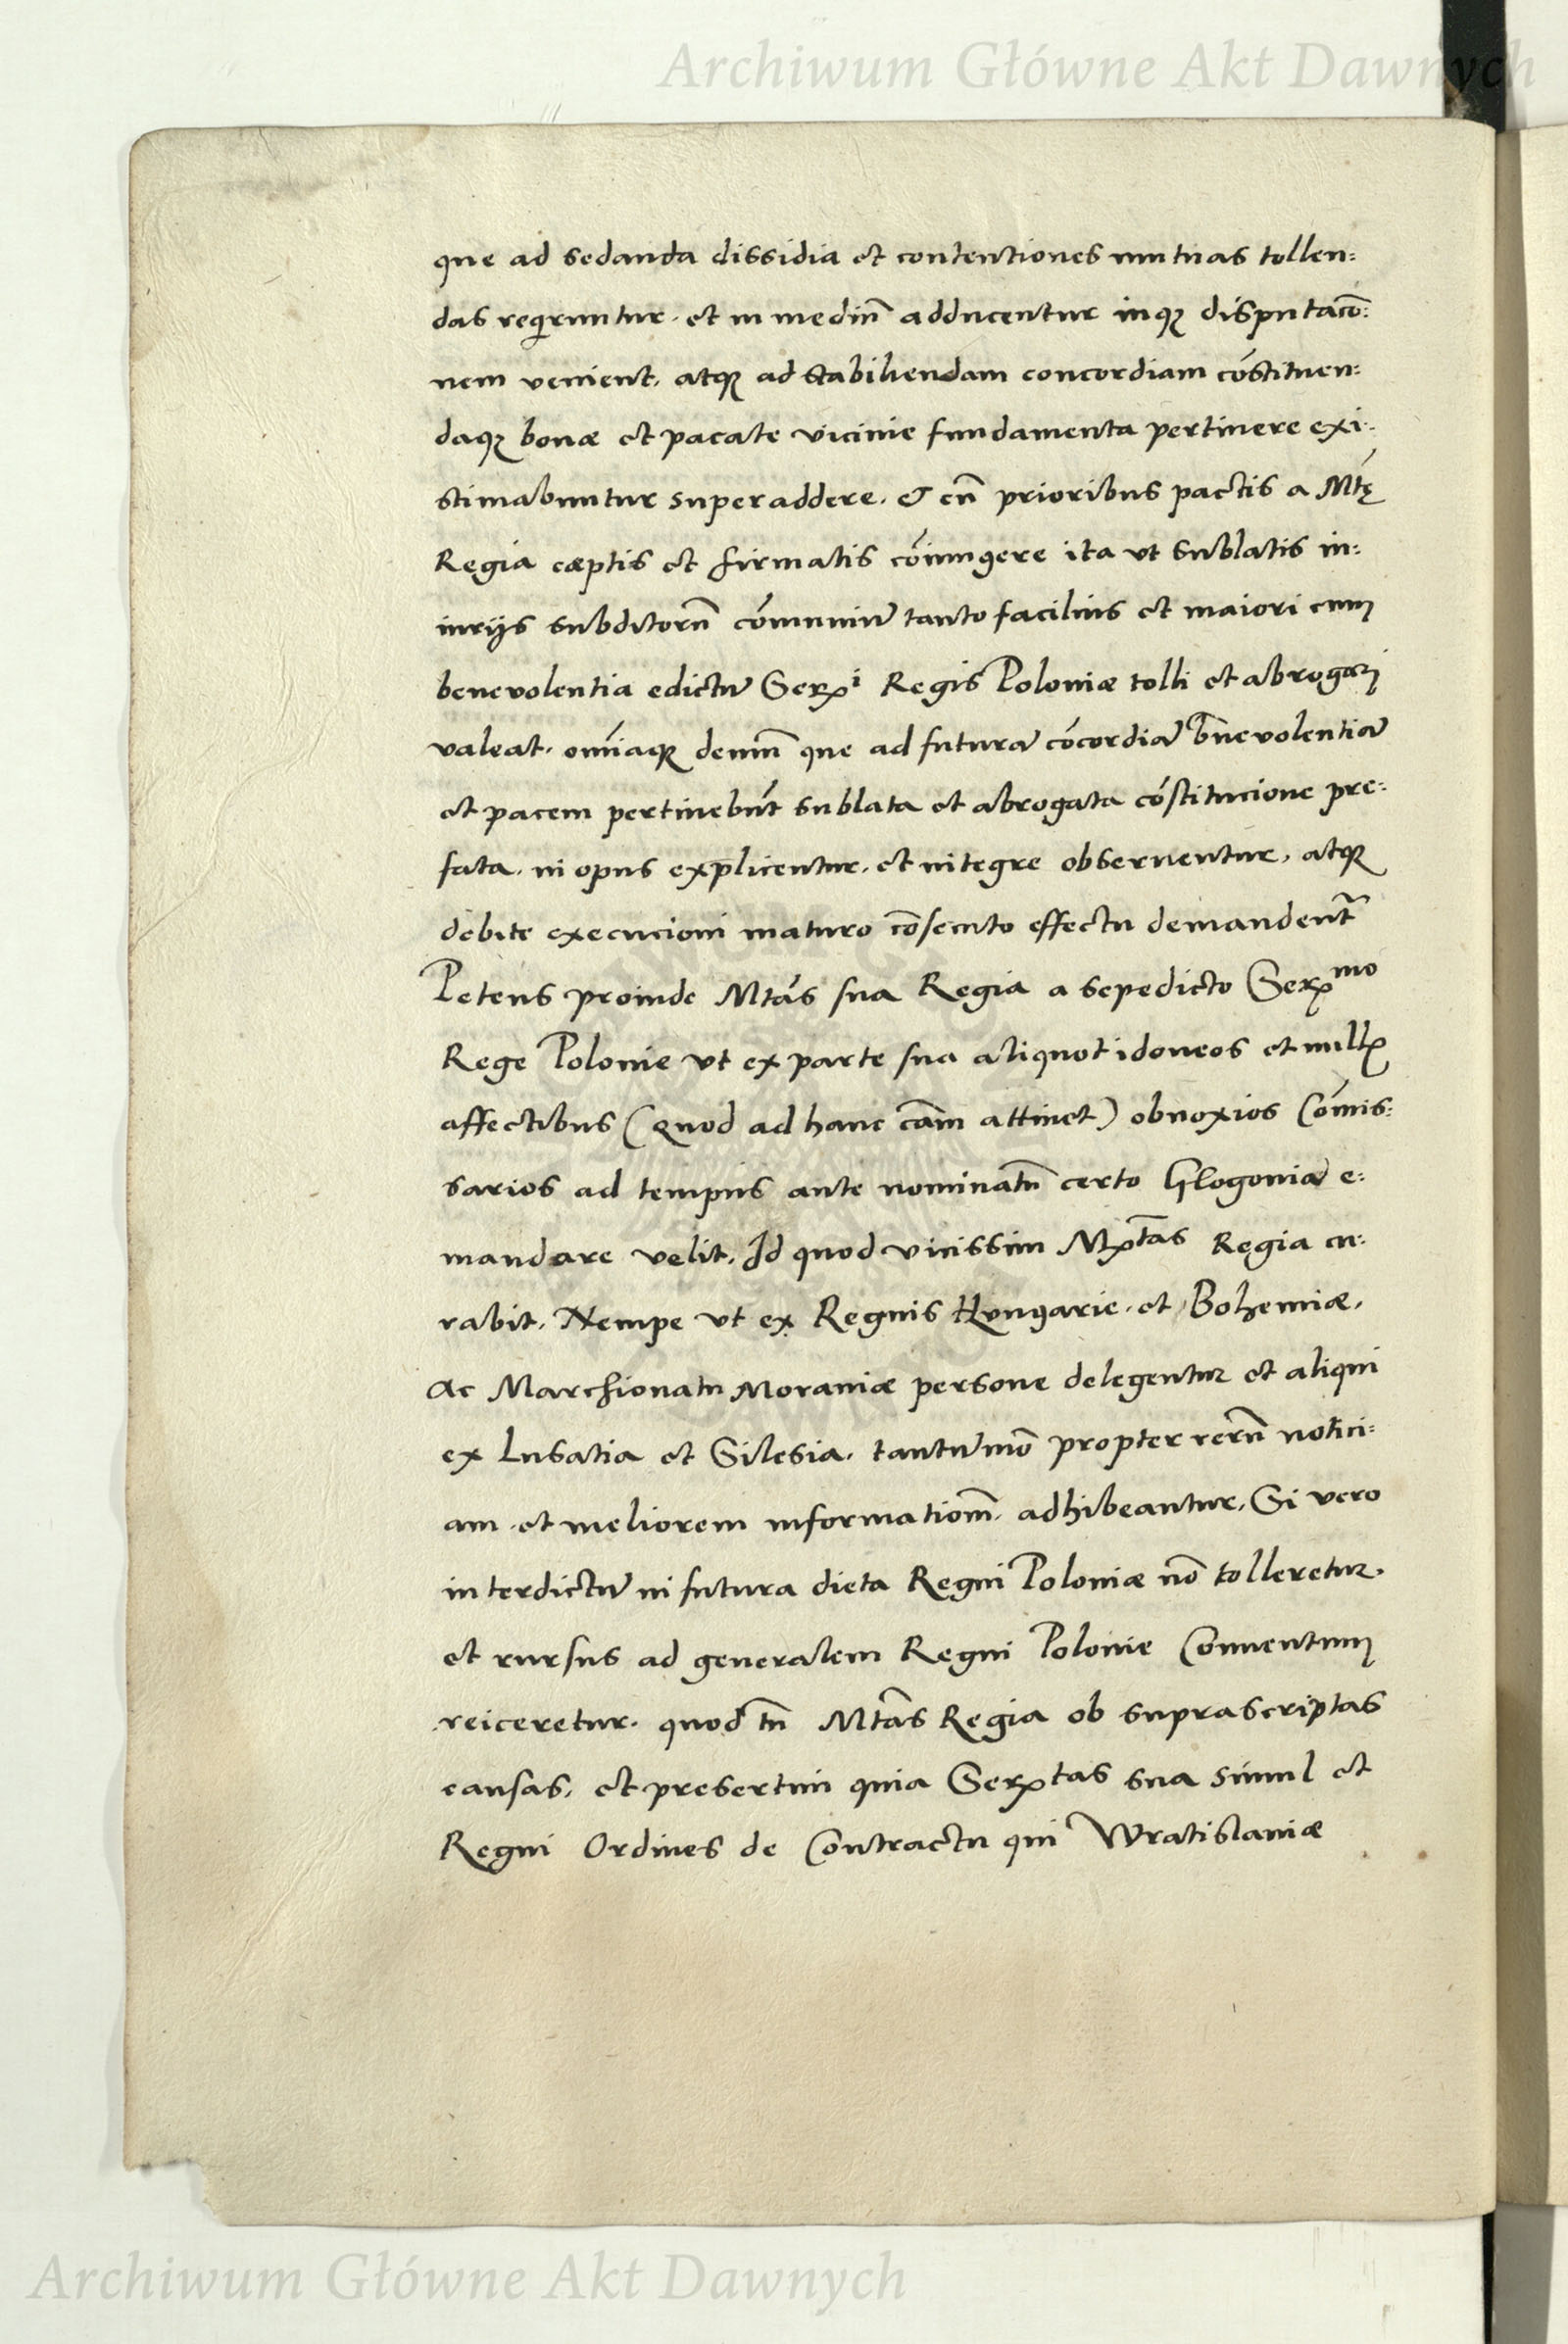 Archiwum Główne Akt Dawnych
que ad sedanda dissidia et contentiones mutuas tollen:
das reqͥruntur. et in mediu͞ adducentur inqꝫ disputaco͞:
nem venient. atqꝫ ad stabiliendam concordiam co͞stituen:
daqꝫ bonæ et pacate vicinie fundamenta pertinere exi:
stimabuntur superaddere. & cu͞ prioribus pactis a Mtę
Regia cæptis et firmatis co͞iungere ita ut sublatis in:
iurijs subditoru͞ co͞muniu͞ tanto facilius et maiori cum
benevolentia edictu͞ Serᵐⁱ Regis Poloniæ tolli et abrogari
valeat. om͞iaqꝫ demu͞ que ad futura͞ co͞cordia͞ b͞nevolentia͞
et pacem pertinebu͞t sublata et abrogata co͞stitucione pre:
fata. in opus explicentur. et integre observentur, atqꝫ
debite execucioni maturo co͞secuto effectu demandent͞
Petens proinde Mta͞s sua Regia a sepedicto Serᵐᵒ
Rege Polonie ut ex parte sua aliquot idoneos et nullꝭ
affectibus (quod ad hanc ca͞m attinet) obnoxios Co͞mis:
sarios ad tempus ante nominatu͞ certo Glogonia͞ e:
mandare velit. Id quod vicissim Mꝭtas Regia cu:
rabit. Nempe ut ex Regnis Hungarie. et Bohemiæ.
Ac Marchionatu Moraviæ persone delegentur et aliqui
ex Lusatia et Silesia. tantu͞mo͞ propter reru͞ notici:
am. et meliorem informatione͞m. adhibeantur. Si vero
interdictu͞ in futura dieta Regni Poloniæ no͞ tolleretur.
et rursus ad generalem Regni Polonie Conventum
reiceretur. quod tn͞ Mta͞s Regia ob suprascriptas
causas. et presertim quia Serꝭtas sua simul et
Regni Ordines de Contractu qui Wratislaviæ
Archiwum Główne Akt Dawnych